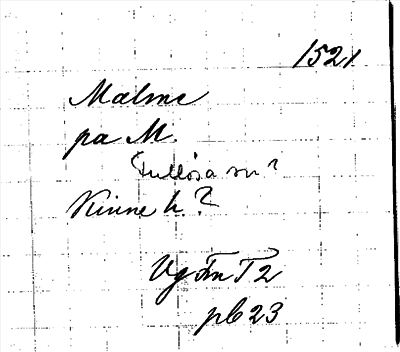 1521
Malme
pa M.
Fullösa sn?
Kinne h.?
Vg Fm T2
pb 23